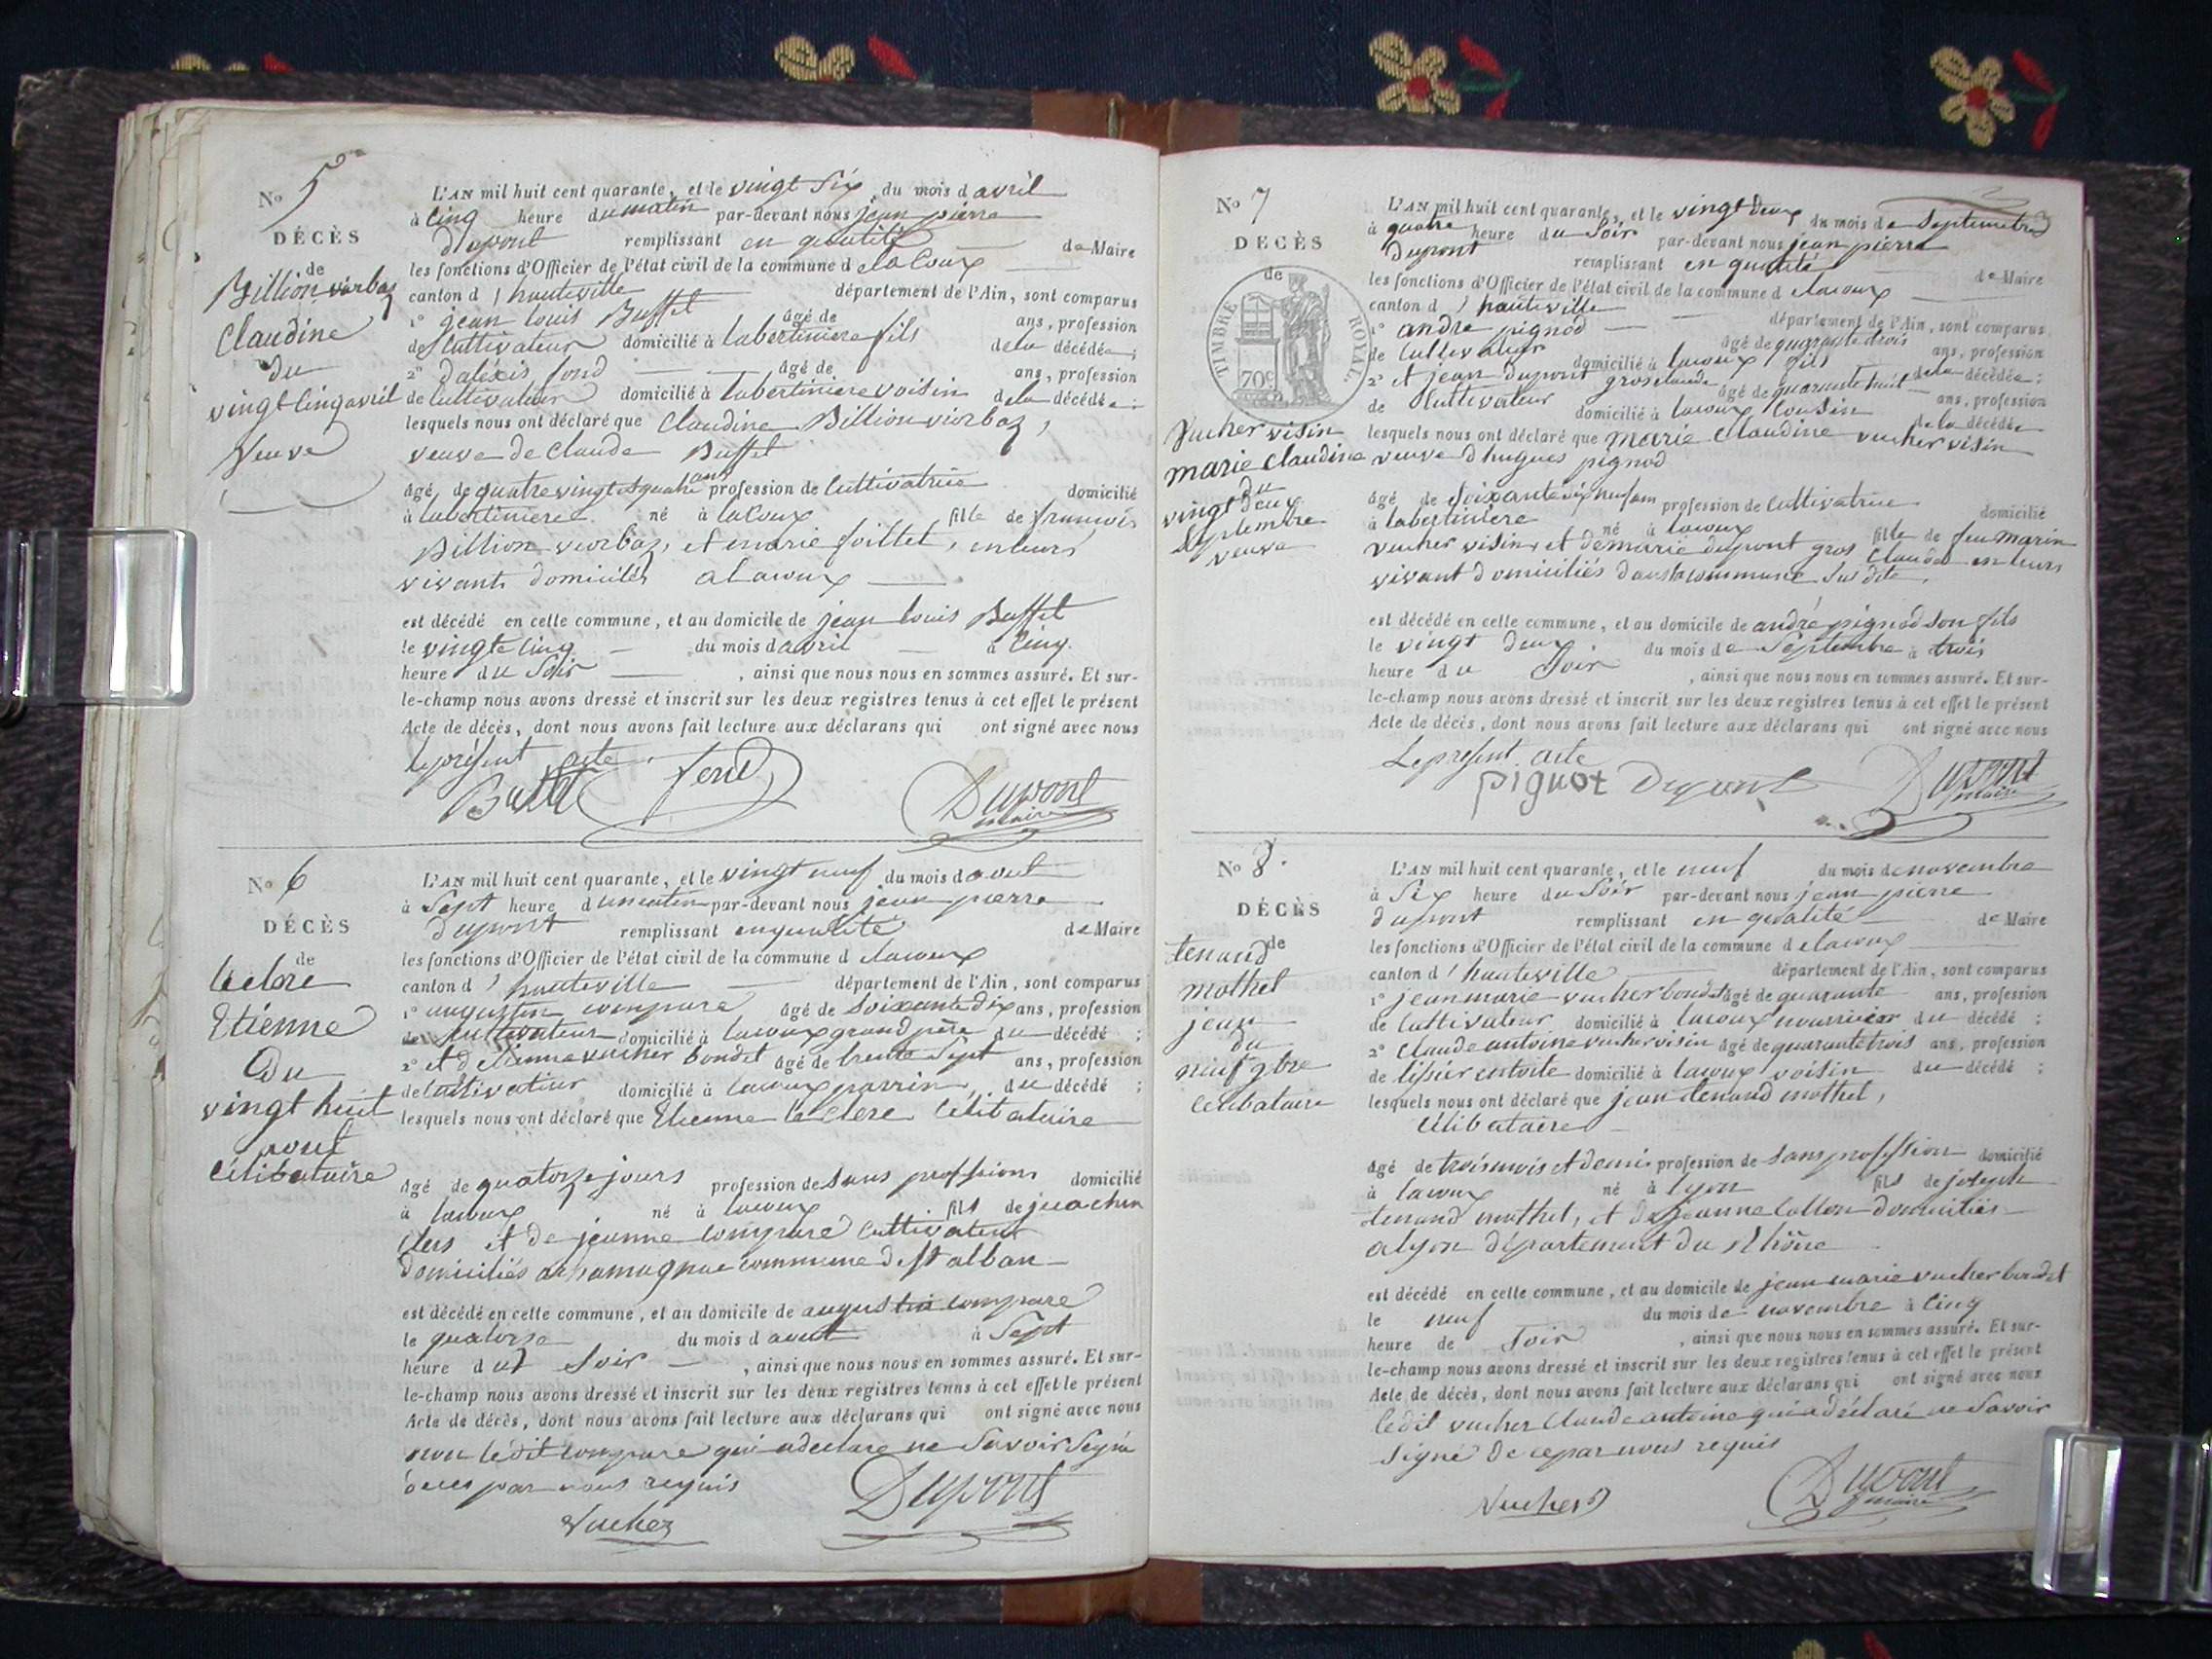 No 5
DÉCÈS
de
Billion viorbaz
Claudine
du
vingt Cinq avril
veuve
L'AN mil huit cent quarante, et le vingt Six du mois d avril
à Cinq heure du matin par-devant nous jean pierre
dupont remplissant en qualité de Maire
les fonctions d'Officier de l'état civil de la commune d elacoux
canton d' hauteville département de l'Ain, sont comparus
1° jean louis Buffet âgé de ans, profession
de Cultivateur domicilié à labertiniere fils dela décédée ;
2° d'aléxis fond âgé de ans, profession
de Cultivateur domicilié à labertiniere voisin dela décédée ;
lesquels nous ont déclaré que Claudine Billion viorbaz,
veuve de Claude Buffet
âgé de quatre vingt quatre ans profession de Cultivatrice domicilié
à labertiniere né à lacoux fille de francois
Billion viorbaz, et marie foillet, en leurs
vivants domiciliés a lacoux
est décédé en cette commune, et au domicile de jean louis Buffet
le vingte cinq du mois d avril à Cinq
heure du Soir , ainsi que nous nous en sommes assuré. Et sur-
le-champ nous avons dressé et inscrit sur les deux registres tenus à cet effet le présent
Acte de décès, dont nous avons fait lecture aux déclarans qui ont signé avec nous
le présent acte.
Buffet fond Dupont
maire
No 6
DÉCÈS
de
leclere
Etienne
Du
vingt huit
aout
Célibataire
L'AN mil huit cent quarante, et le vingt neuf du mois d aout
à Sept heure du matin par-devant nous jean pierre
dupont remplissant en qualité de Maire
les fonctions d'Officier de l'état civil de la commune d elacoux
canton d' hauteville département de l'Ain, sont comparus
1° augustin compare âgé de Soixante dix ans, profession
de Cultivateur domicilié à lacoux grand père du décédé ;
2° et d'Etienne vucher bondet âgé de trente Sept ans, profession
de Cultivateur domicilié à lacoux parrin du décédé ;
lesquels nous ont déclaré que Etienne le clere Célibataire
âgé de quatorze jours profession de Sans profession domicilié
à lacoux né à lacoux fils de juachin
et de jeanne compare Cultivateur
domiciliés commune de St alban
est décédé en cette commune, et au domicile de augustin compare
le quatorze du mois d aout à Sept
heure du Soir , ainsi que nous nous en sommes assuré. Et sur-
le-champ nous avons dressé et inscrit sur les deux registres tenus à cet effet le présent
Acte de décès, dont nous avons fait lecture aux déclarans qui ont signé avec nous
non ledit compare qui a declare ne Savoir Signé
par nous requis
Vucher Dupont
No 7
DÉCÈS
de
TIMBRE ROYAL
70c
Vucher visin
marie Claudine
du
vingt deux
Septembre
veuve
L'AN mil huit cent quarante, et le vingt deux du mois de Septembre
à quatre heure du Soir par-devant nous jean pierre
dupont remplissant en qualité de Maire
les fonctions d'Officier de l'état civil de la commune d elacoux
canton d' hauteville département de l'Ain, sont comparus
1° andre pignod âgé de quarante trois ans, profession
de Cultivateur domicilié à lacoux fils dela décédée ;
2° et jean dupont grosclaude âgé de quarante huit ans, profession
de Cultivateur domicilié à lacoux Cousin dela décédée
lesquels nous ont déclaré que marie Claudine vucher visin
veuve d'hugues pignod
âgé de Soixante dix neuf ans profession de Cultivatrice domicilié
à labertiniere né à lacoux fille de feu marin
vucher visin, et de marie dupont gros Claude en leurs
vivant domiciliés dans la commune Sus dite,
est décédé en cette commune, et au domicile de andré pignod son fils
le vingt deux du mois de Septembre à trois
heure du Soir , ainsi que nous nous en sommes assuré. Et sur-
le-champ nous avons dressé et inscrit sur les deux registres tenus à cet effet le présent
Acte de décès, dont nous avons fait lecture aux déclarans qui ont signé avec nous
Le present acte
pignot Dupont Dupont
maire
No 8.
DÉCÈS
de
tenand
mothet
jean
du
neuf 9bre
Celibataire
L'AN mil huit cent quarante, et le neuf du mois de novembre
à Six heure du Soir par-devant nous jean pierre
dupont remplissant en qualité de Maire
les fonctions d'Officier de l'état civil de la commune d elacoux
canton d' hauteville département de l'Ain, sont comparus
1° jean marie vucher bondet âgé de quarante ans, profession
de Cultivateur domicilié à lacoux nourricier du décédé ;
2° Claude antoine vucher visin âgé de quarante trois ans, profession
de domicilié à lacoux voisin du décédé ;
lesquels nous ont déclaré que jean tenand mothet,
Célibataire
âgé de trois mois et demi profession de Sans profession domicilié
à lacoux né à lyon fils de joseph
tenand mothet, et de jeanne Collon domiciliés
a lyon département du Rhône
est décédé en cette commune, et au domicile de jean marie vucher bondet
le neuf du mois de novembre à Cinq
heure de Soir , ainsi que nous nous en sommes assuré. Et sur-
le-champ nous avons dressé et inscrit sur les deux registres tenus à cet effet le présent
Acte de décès, dont nous avons fait lecture aux déclarans qui ont signé avec nous
ledit vucher Claude antoine qui a déclaré ne Savoir
Signé de ce par nous requis
Vucher Dupont
maire